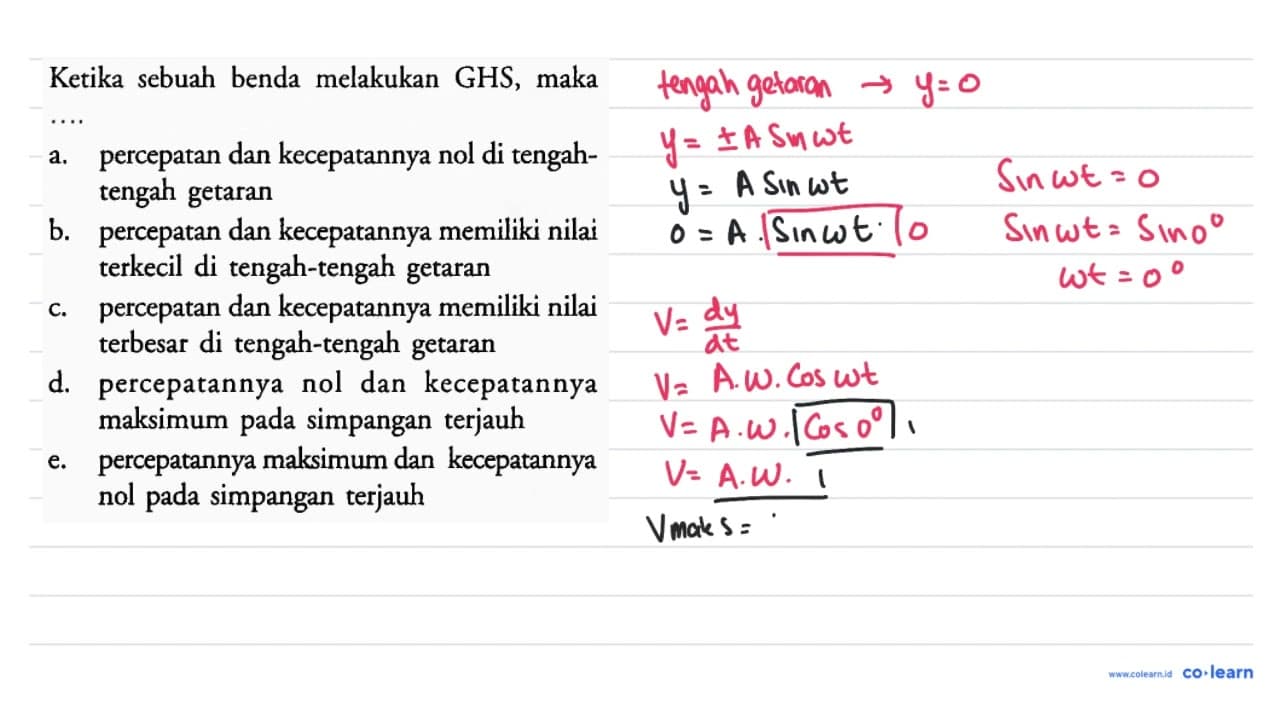 Ketika sebuah benda melakukan GHS, maka
....
a. percepatan dan kecepatannya nol di tengah-
tengah getaran
b. percepatan dan kecepatannya memiliki nilai
terkecil di tengah-tengah getaran
c. percepatan dan kecepatannya memiliki nilai
terbesar di tengah-tengah getaran
d. percepatannya nol dan kecepatannya
maksimum pada simpangan terjauh
e. percepatannya maksimum dan kecepatannya
nol pada simpangan terjauh
tengah getaran → y = 0
y = ± A Sin ωt
y = A Sin ωt
0 = A . Sin ωt . 0
Sin ωt = 0
Sin ωt = Sin 0°
ωt = 0°
V = dy/dt
V = A.W. Cos ωt
V = A.W. Cos 0° 1
V = A.W. 1
V maks =
www.colearn.id co·learn